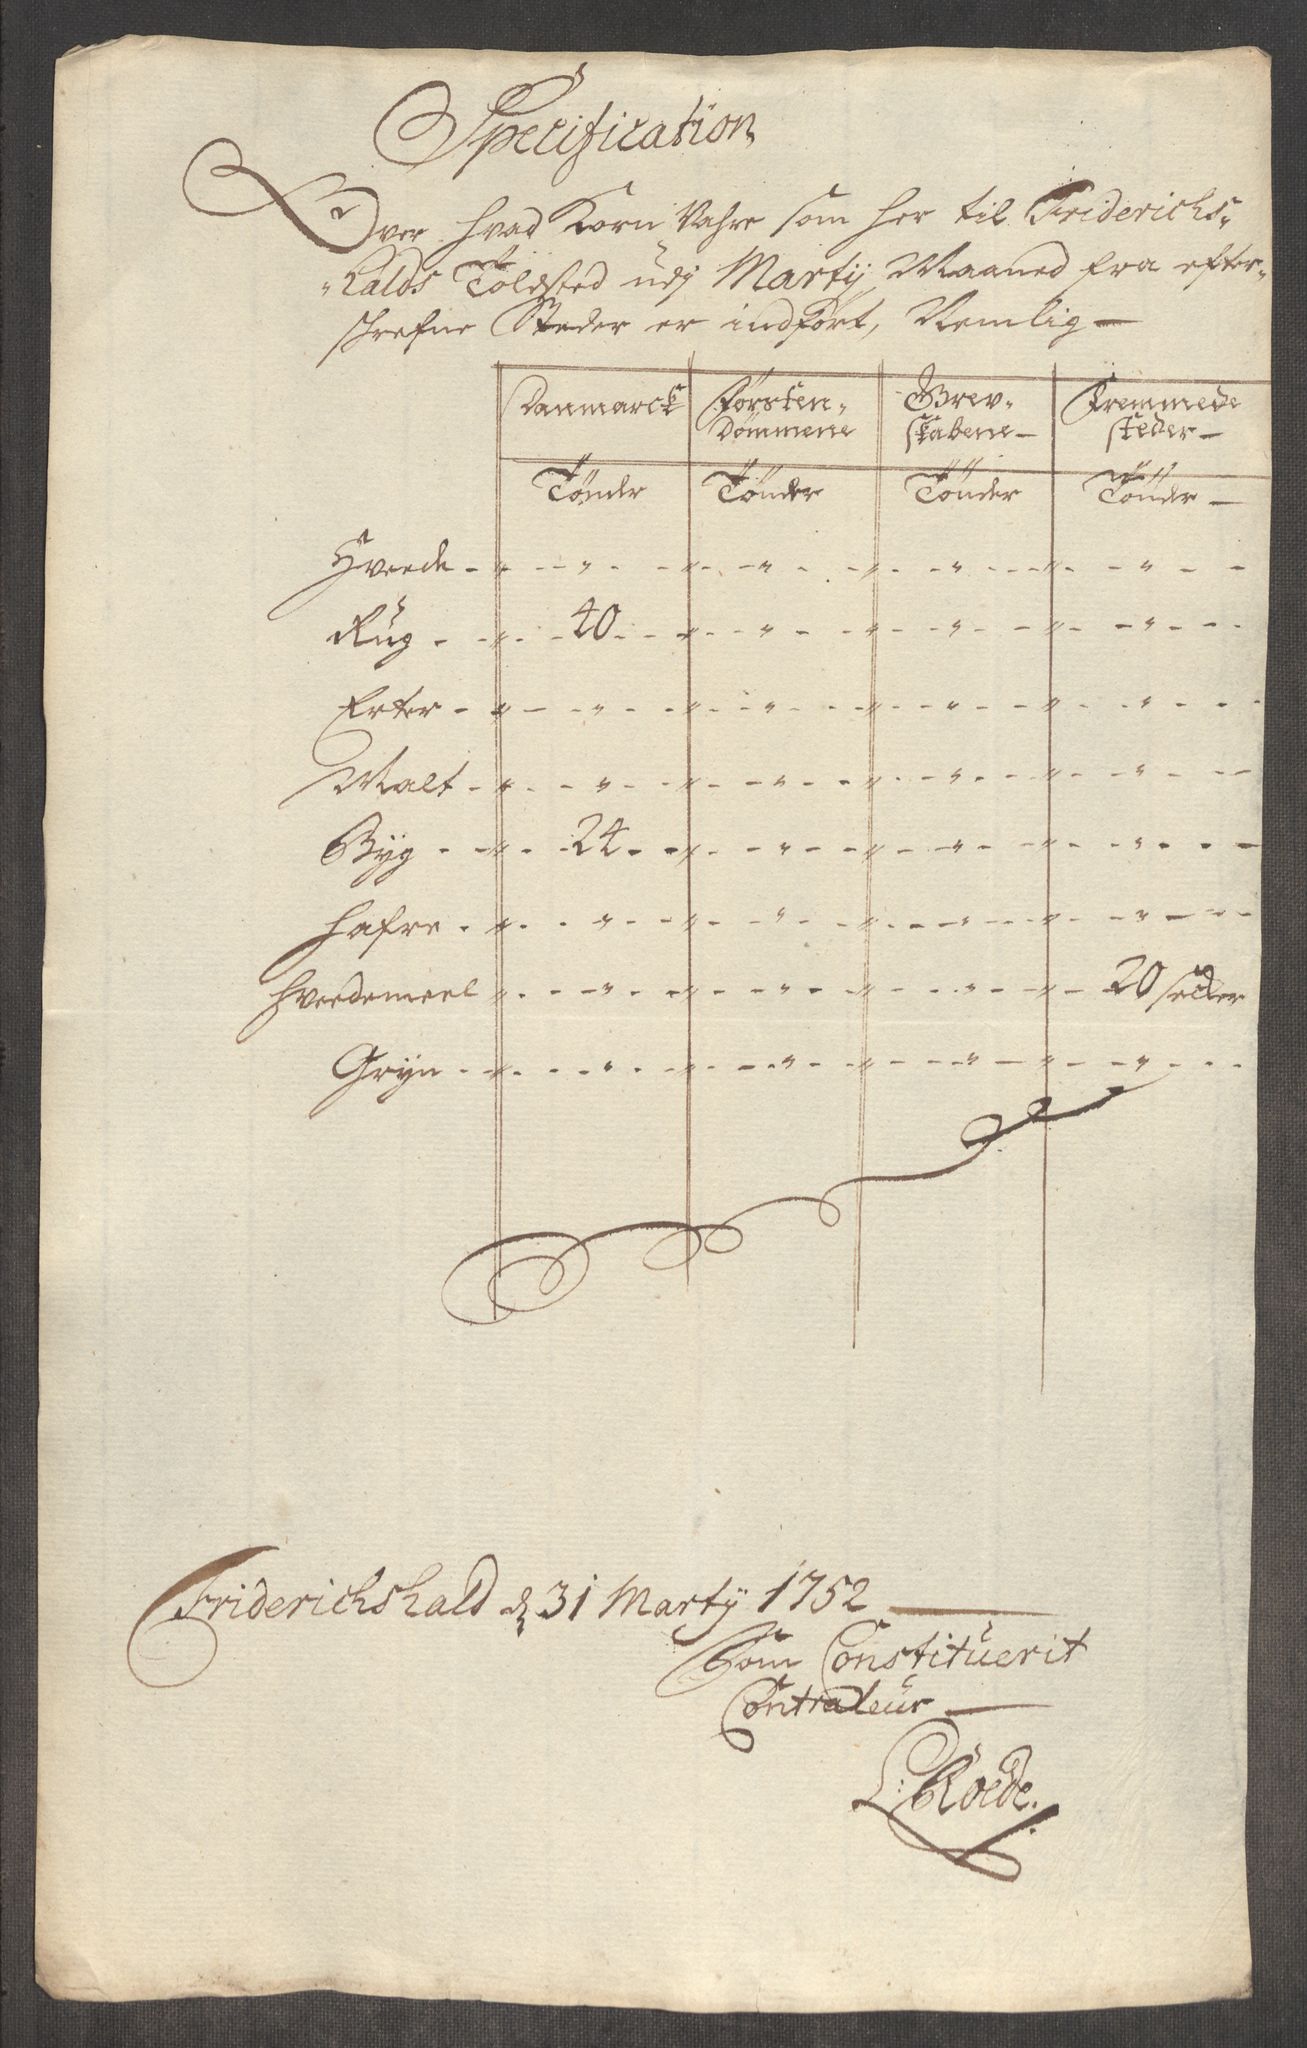 Specification
Over hvad Korn Vahre som her til Friderichs-
halds Toldsted udj Martij Maaned fra efter-
schrefne Steder er indført, Nemlig —
Danmarck Førsten- Grev- Fremmede
Dømmene skabene — steder —
Tønder Tønder Tønder Tønder —
Hvede - " " " "
Rug - 40 " " "
Erter - " " " "
Malt - " " " "
Byg - 24 " " "
Hafre - " " " "
Hvedemeel " " " 20 secker
Gryn - " " " "
Friderichshald d 31 Martij 1752
Som Constituerit
Contraleur —
L: Roede.